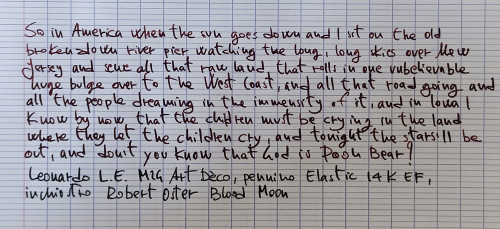 So in America when the sun goes down and I sit on the old
broken-down river pier watching the long, long skies over New
Jersey and sense all that raw land that rolls in one unbelievable
huge bulge over to the West Coast, and all that road going and
all the people dreaming in the immensity of it, and in Iowa I
know by now that the children must be crying in the land
where they let the children cry, and tonight the stars'll be
out, and don't you know that God is Pooh Bear?
Leonardo L.E. MZG Art Deco, pennino Elastic 14K EF,
inchiostro Robert Oster Blood Moon